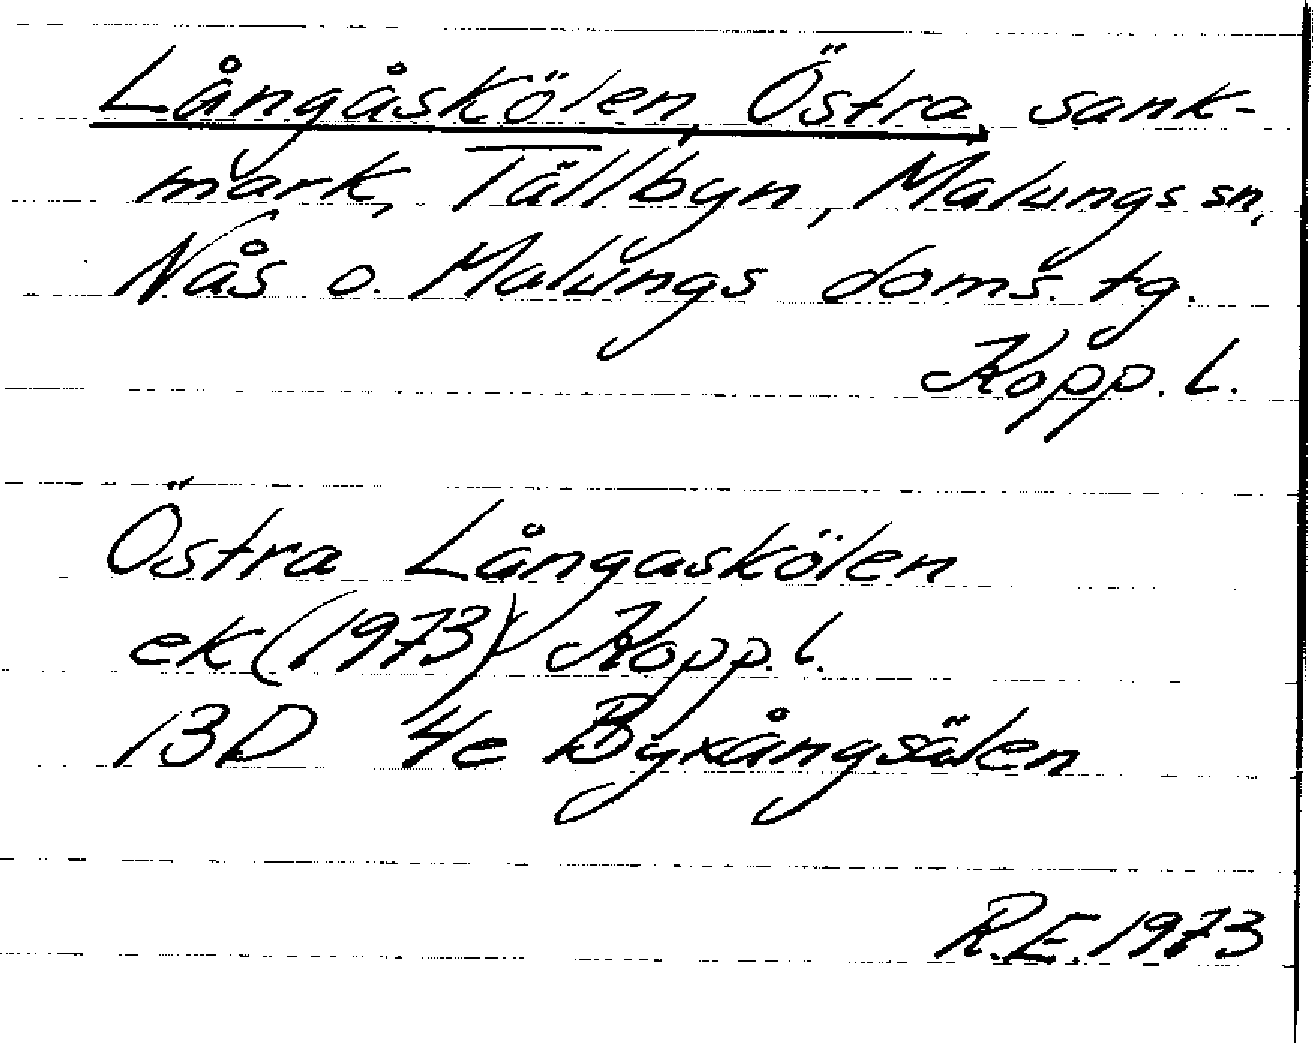 Långåskölen, Östra, sank-
mark, Tällbyn, Malungs sn,
Nås o. Malungs doms. tg.
Kopp. l.
Östra Långaskölen
ek (1973) Kopp. l.
13D 4e Byxångsälen
R.E. 1973